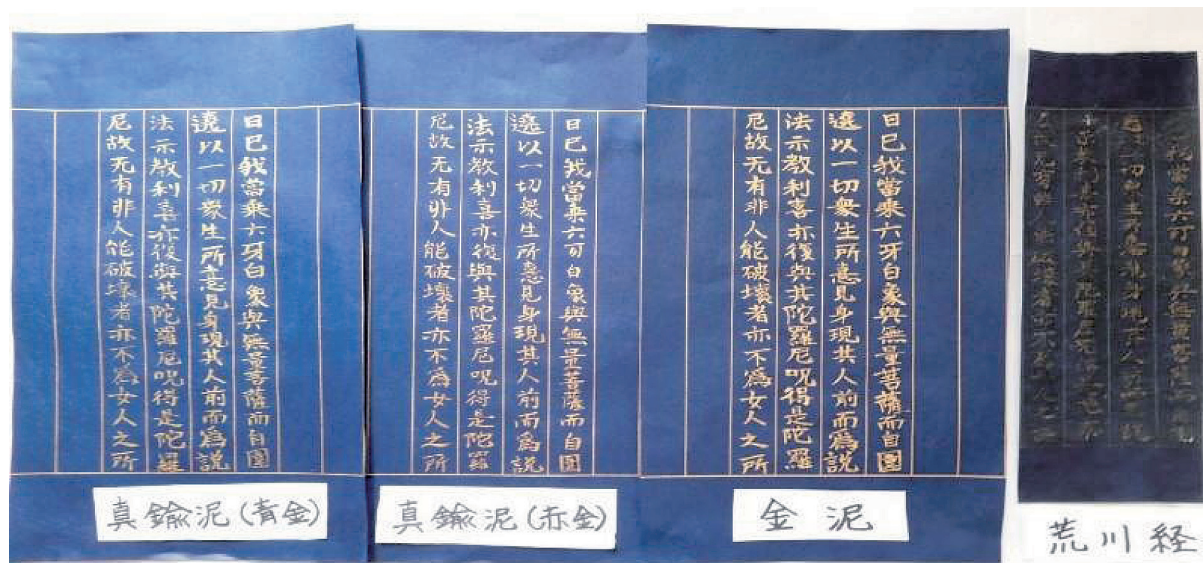 日已我當乗六牙白象與無量菩薩而自圍
遶以一切衆生所憙見身現其人前而爲説
法示教利喜亦復與其陀羅尼呪得是陀羅
尼故无有非人能破壞者亦不爲女人之所
真鍮泥(青金)
日已我當乗六牙白象與無量菩薩而自圍
遶以一切衆生所憙見身現其人前而爲説
法示教利喜亦復與其陀羅尼呪得是陀羅
尼故无有非人能破壞者亦不爲女人之所
真鍮泥(赤金)
日已我當乗六牙白象與無量菩薩而自圍
遶以一切衆生所憙見身現其人前而爲説
法示教利喜亦復與其陀羅尼呪得是陀羅
尼故无有非人能破壞者亦不爲女人之所
金泥
我當乗六牙白象與無量菩薩
一切衆生
荒川経